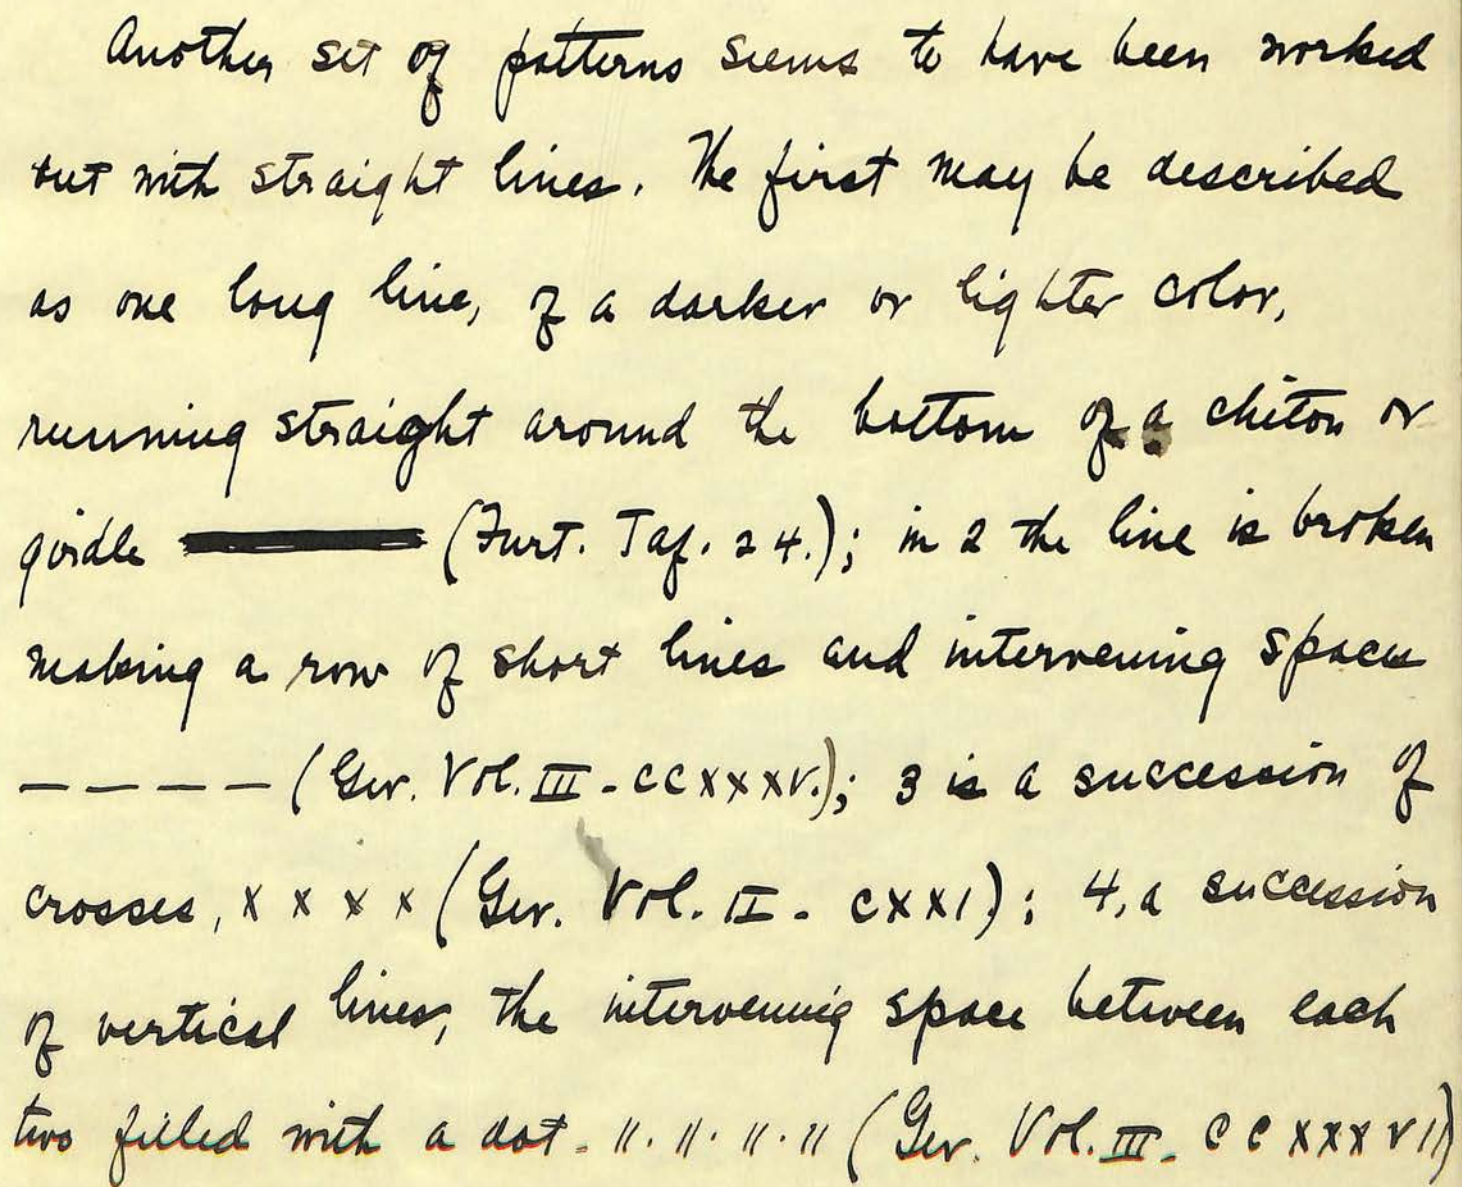 Another set of patterns seems to have been worked
out with straight lines. The first may be described
as one long line, of a darker or lighter color,
running straight around the bottom of a chiton or
girdle ——— (Furt. Taf. 24.); in 2 the line is broken
making a row of short lines and intervening spaces
— — — — — (Ger. Vol. III - CCXXXV.); 3 is a succession of
crosses, x x x x (Ger. Vol. II - CXXI); 4, a succession
of vertical lines, the intervening space between each
two filled with a dot - ||. ||. ||. || (Ger. Vol. III - CCXXXVII)